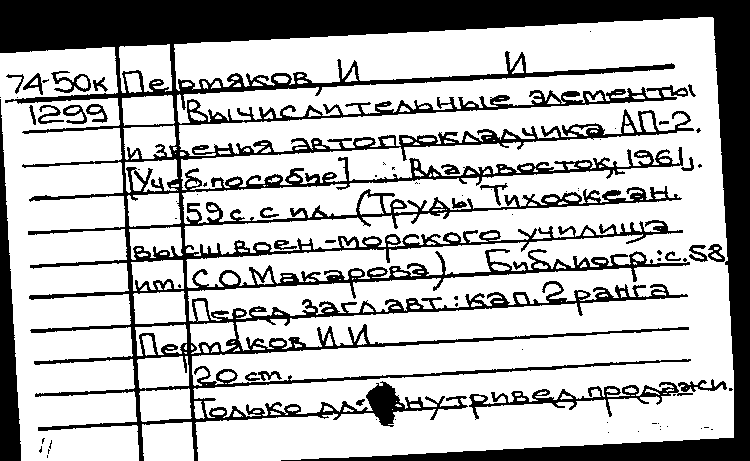 74-50к Пермяков, И И
1299 Вычислительные элементы
и звенья автопрокладчика АП-2.
[Учеб.пособие] .: Владивосток, 1961,.
59 с. с ил. (Труды Тихоокеан.
высш.воен.-морского училища
им. С.О.Макарова). Библиогр.:с.58
Перед загл.авт.:кап.2 ранга
Пермяков И.И.
20 см.
Только внутривед.продажи.